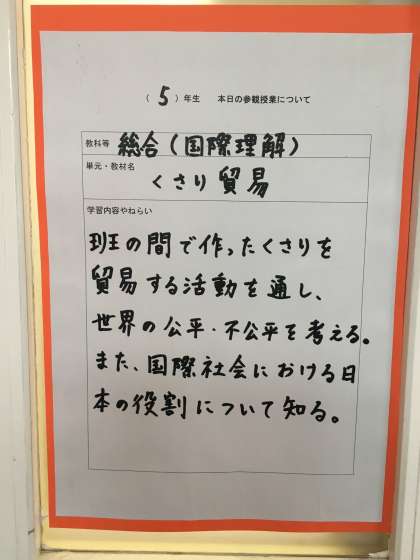 （ 5 ）年生　本日の参観授業について
教科等　総合（国際理解）
単元・教材名
くさり貿易
学習内容やねらい
班の間で作ったくさりを
貿易する活動を通し、
世界の公平・不公平を考える。
また、国際社会における日
本の役割について知る。